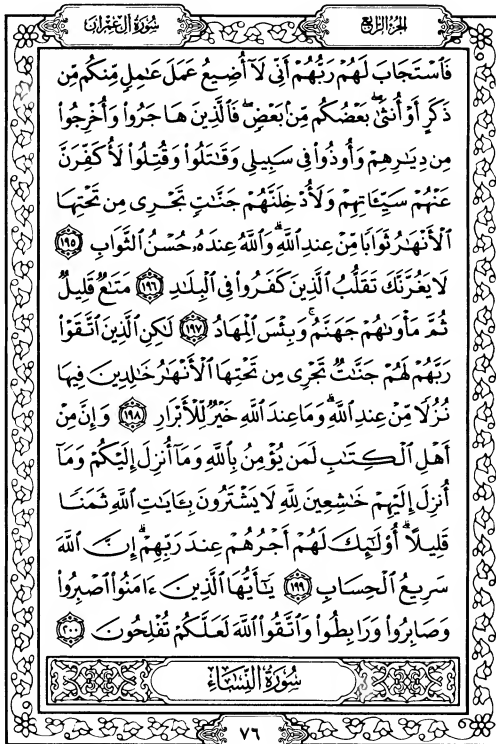 سُورَةُ آلِ عِمْرَانَ
الجُزْءُ الرَّابِعُ
فَاسْتَجَابَ لَهُمْ رَبُّهُمْ أَنِّى لَآ أُضِيعُ عَمَلَ عَامِلٍ مِّنكُم مِّن
ذَكَرٍ أَوْ أُنثَىٰۖ بَعْضُكُم مِّنۢ بَعْضٍۖ فَالَّذِينَ هَاجَرُوا۟ وَأُخْرِجُوا۟
مِن دِيَـٰرِهِمْ وَأُوذُوا۟ فِى سَبِيلِى وَقَـٰتَلُوا۟ وَقُتِلُوا۟ لَأُكَفِّرَنَّ
عَنْهُمْ سَيِّـَٔاتِهِمْ وَلَأُدْخِلَنَّهُمْ جَنَّـٰتٍ تَجْرِى مِن تَحْتِهَا
الْأَنْهَـٰرُ ثَوَابًا مِّنْ عِندِ اللَّهِۗ وَاللَّهُ عِندَهُۥ حُسْنُ الثَّوَابِ ١٩٥
لَا يَغُرَّنَّكَ تَقَلُّبُ الَّذِينَ كَفَرُوا۟ فِى الْبِلَـٰدِ ١٩٦ مَتَـٰعٌ قَلِيلٌ
ثُمَّ مَأْوَىٰهُمْ جَهَنَّمُۚ وَبِئْسَ الْمِهَادُ ١٩٧ لَـٰكِنِ الَّذِينَ اتَّقَوْا۟
رَبَّهُمْ لَهُمْ جَنَّـٰتٌ تَجْرِى مِن تَحْتِهَا الْأَنْهَـٰرُ خَـٰلِدِينَ فِيهَا
نُزُلًا مِّنْ عِندِ اللَّهِۗ وَمَا عِندَ اللَّهِ خَيْرٌ لِّلْأَبْرَارِ ١٩٨ وَإِنَّ مِنْ
أَهْلِ الْكِتَـٰبِ لَمَن يُؤْمِنُ بِاللَّهِ وَمَآ أُنزِلَ إِلَيْكُمْ وَمَآ
أُنزِلَ إِلَيْهِمْ خَـٰشِعِينَ لِلَّهِ لَا يَشْتَرُونَ بِـَٔايَـٰتِ اللَّهِ ثَمَنًا
قَلِيلًاۗ أُو۟لَـٰٓئِكَ لَهُمْ أَجْرُهُمْ عِندَ رَبِّهِمْۗ إِنَّ اللَّهَ
سَرِيعُ الْحِسَابِ ١٩٩ يَـٰٓأَيُّهَا الَّذِينَ ءَامَنُوا۟ اصْبِرُوا۟
وَصَابِرُوا۟ وَرَابِطُوا۟ وَاتَّقُوا۟ اللَّهَ لَعَلَّكُمْ تُفْلِحُونَ ٢٠٠
سُورَةُ النِّسَاءِ
٧٦